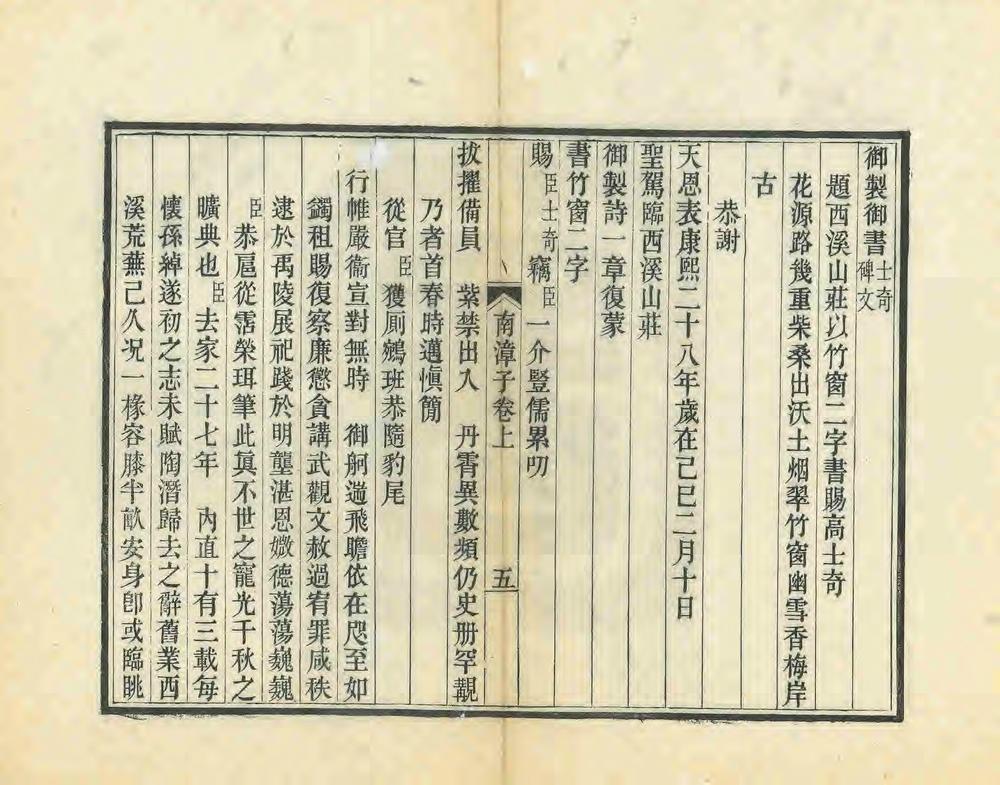 御製御書士奇碑文
題西溪山莊以竹窗二字書賜高士奇
花源路幾重柴桑出沃土烟翠竹窗幽雪香梅岸
古
恭謝
天恩表康熙二十八年歲在己巳二月十日
聖駕臨西溪山莊
御製詩一章復蒙
書竹窗二字
賜臣士奇竊臣一介豎儒累叨
南漳子卷上 五
拔擢備員 紫禁出入 丹霄異數頻仍史册罕覯
乃者首春時邁愼簡
從官臣獲厠鵷班恭隨豹尾
行帷嚴衞宣對無時 御舸遄飛瞻依在咫至如
蠲租賜復察廉懲貪講武觀文赦過宥罪咸秩
逮於禹陵展祀踐於明壟湛恩媺德蕩蕩巍巍
臣恭扈從霑榮珥筆此眞不世之寵光千秋之
曠典也臣去家二十七年 內直十有三載每
懷孫綽遂初之志未賦陶潛歸去之辭舊業西
溪荒蕪已久况一椽容膝半畝安身卽或臨眺